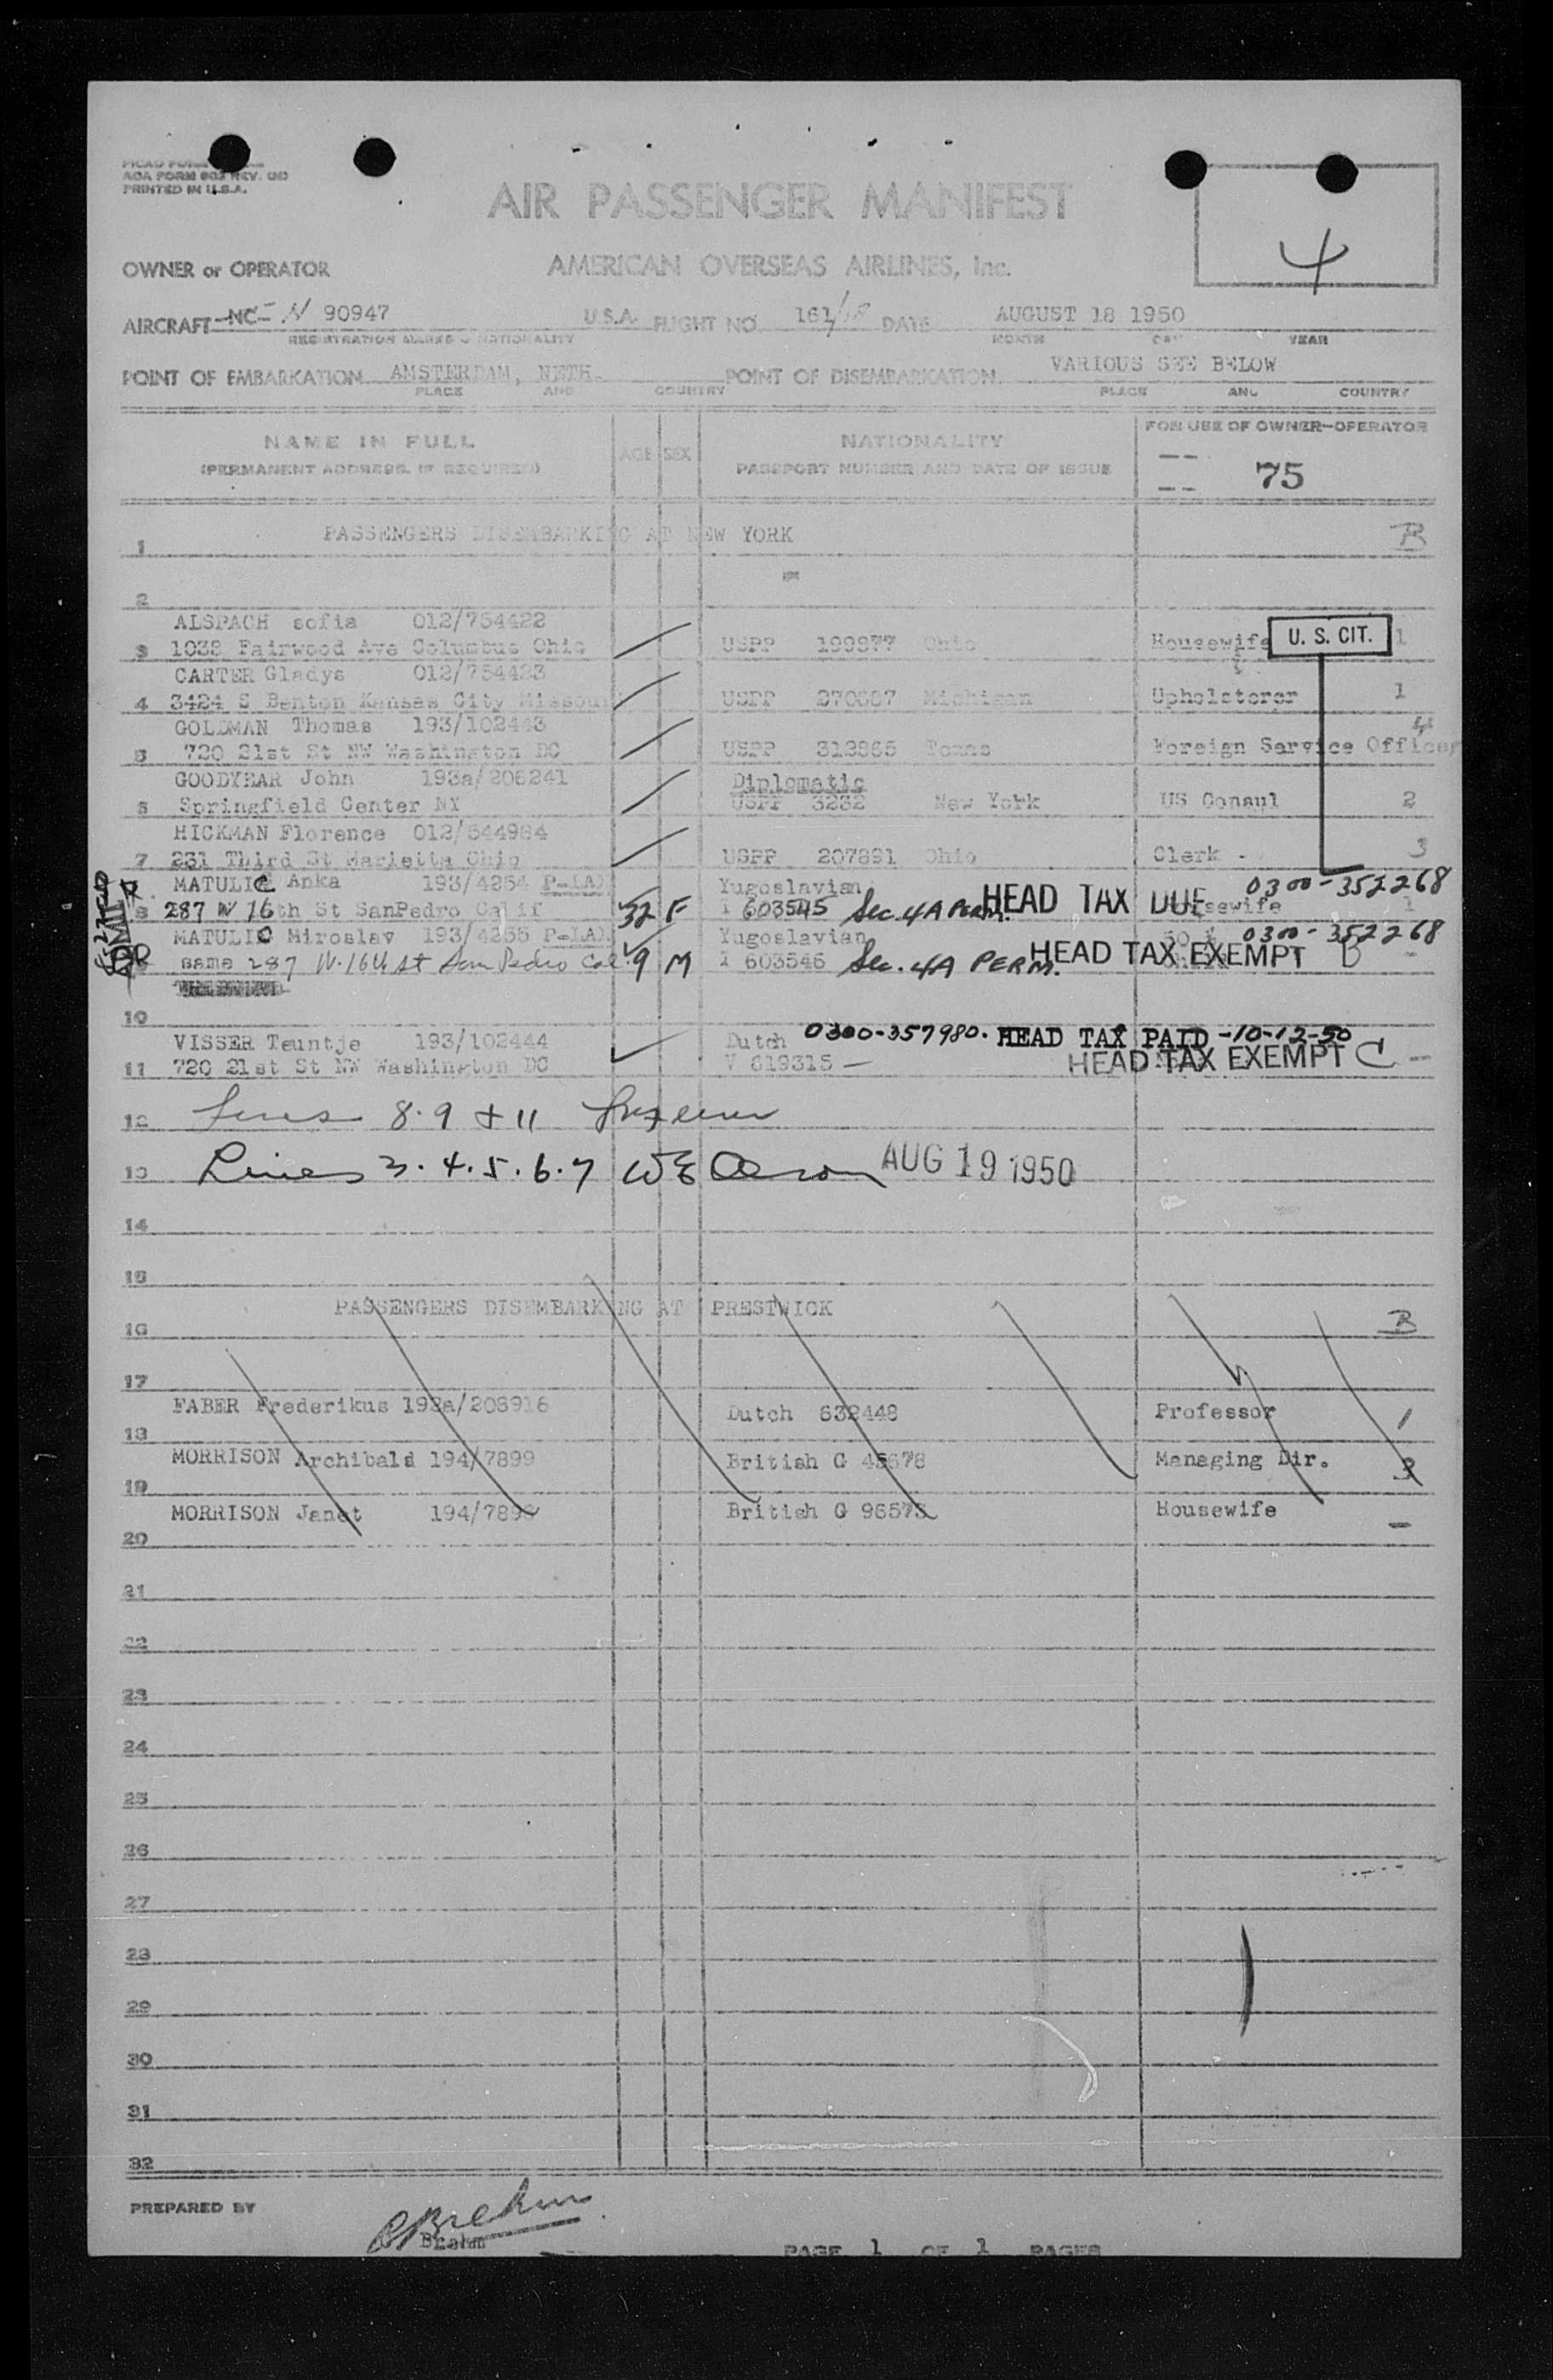 ACA FORM 603 REV.
PRINTED IN U.S.A.
AIR PASSENGER MANIFEST
4
OWNER or OPERATOR AMERICAN OVERSEAS AIRLINES, Inc.
AIRCRAFT NC- N 90947 U.S.A. FLIGHT NO. 161/18 DATE AUGUST 18 1950
REGISTRATION MARKS & NATIONALITY MONTH DAY YEAR
POINT OF EMBARKATION AMSTERDAM, NETH. POINT OF DISEMBARKATION VARIOUS SEE BELOW
PLACE AND COUNTRY PLACE AND COUNTRY
NAME IN FULL AGE SEX NATIONALITY FOR USE OF OWNER-OPERATOR
(PERMANENT ADDRESS, IF REQUIRED) PASSPORT NUMBER AND DATE OF ISSUE 75
1 PASSENGERS DISEMBARKING AT NEW YORK B
2
ALSPACH sofia 012/754422
3 1038 Fairwood Ave Columbus Ohio USPP 199977 Ohio Housewife U. S. CIT. 1
CARTER Gladys 012/754423
4 3424 S Benton Kansas City Missou USPP 270687 Michigan Upholsterer 1
GOLDMAN Thomas 193/102443
5 720 21st St NW Washington DC USPP 312865 Texas Foreign Service Officer
GOODYEAR John 193a/206241 Diplomatic
6 Springfield Center NY USPP 3232 New York US Consul 2
HICKMAN Florence 012/544984
7 231 Third St Marietta Ohio USPP 207891 Ohio Clerk 3
MATULIC Anka 193/4254 P-LAX Yugoslavian HEAD TAX DUE 0300-352268
8 287 W 16th St SanPedro Calif 32 F I 603545 Sec. 4A PERM. 1
MATULIC Miroslav 193/4255 P-LAX Yugoslavian 0300-352268
same 287 W. 16th St San Pedro Cal. 9 M I 603546 Sec. 4A PERM. HEAD TAX EXEMPT B -
10
VISSER Teuntje 193/102444 Dutch 0300-357980. HEAD TAX PAID -10-12-50
11 720 21st St NW Washington DC V 619315 — HEAD TAX EXEMPT C —
12 Lines 8.9 & 11
13 Lines 3.4.5.6.7 AUG 19 1950
14
15
16 PASSENGERS DISEMBARKING AT PRESTWICK B
17
FABER Frederikus 193a/206916 Dutch 632448 Professor 1
18
MORRISON Archibald 194/7899 British C 45678 Managing Dir.
19
MORRISON Janet British C 96573 Housewife —
20
21
22
23
24
25
26
27
28
29
30
31
32
PREPARED BY Brehm
PAGE 1 OF 1 PAGES